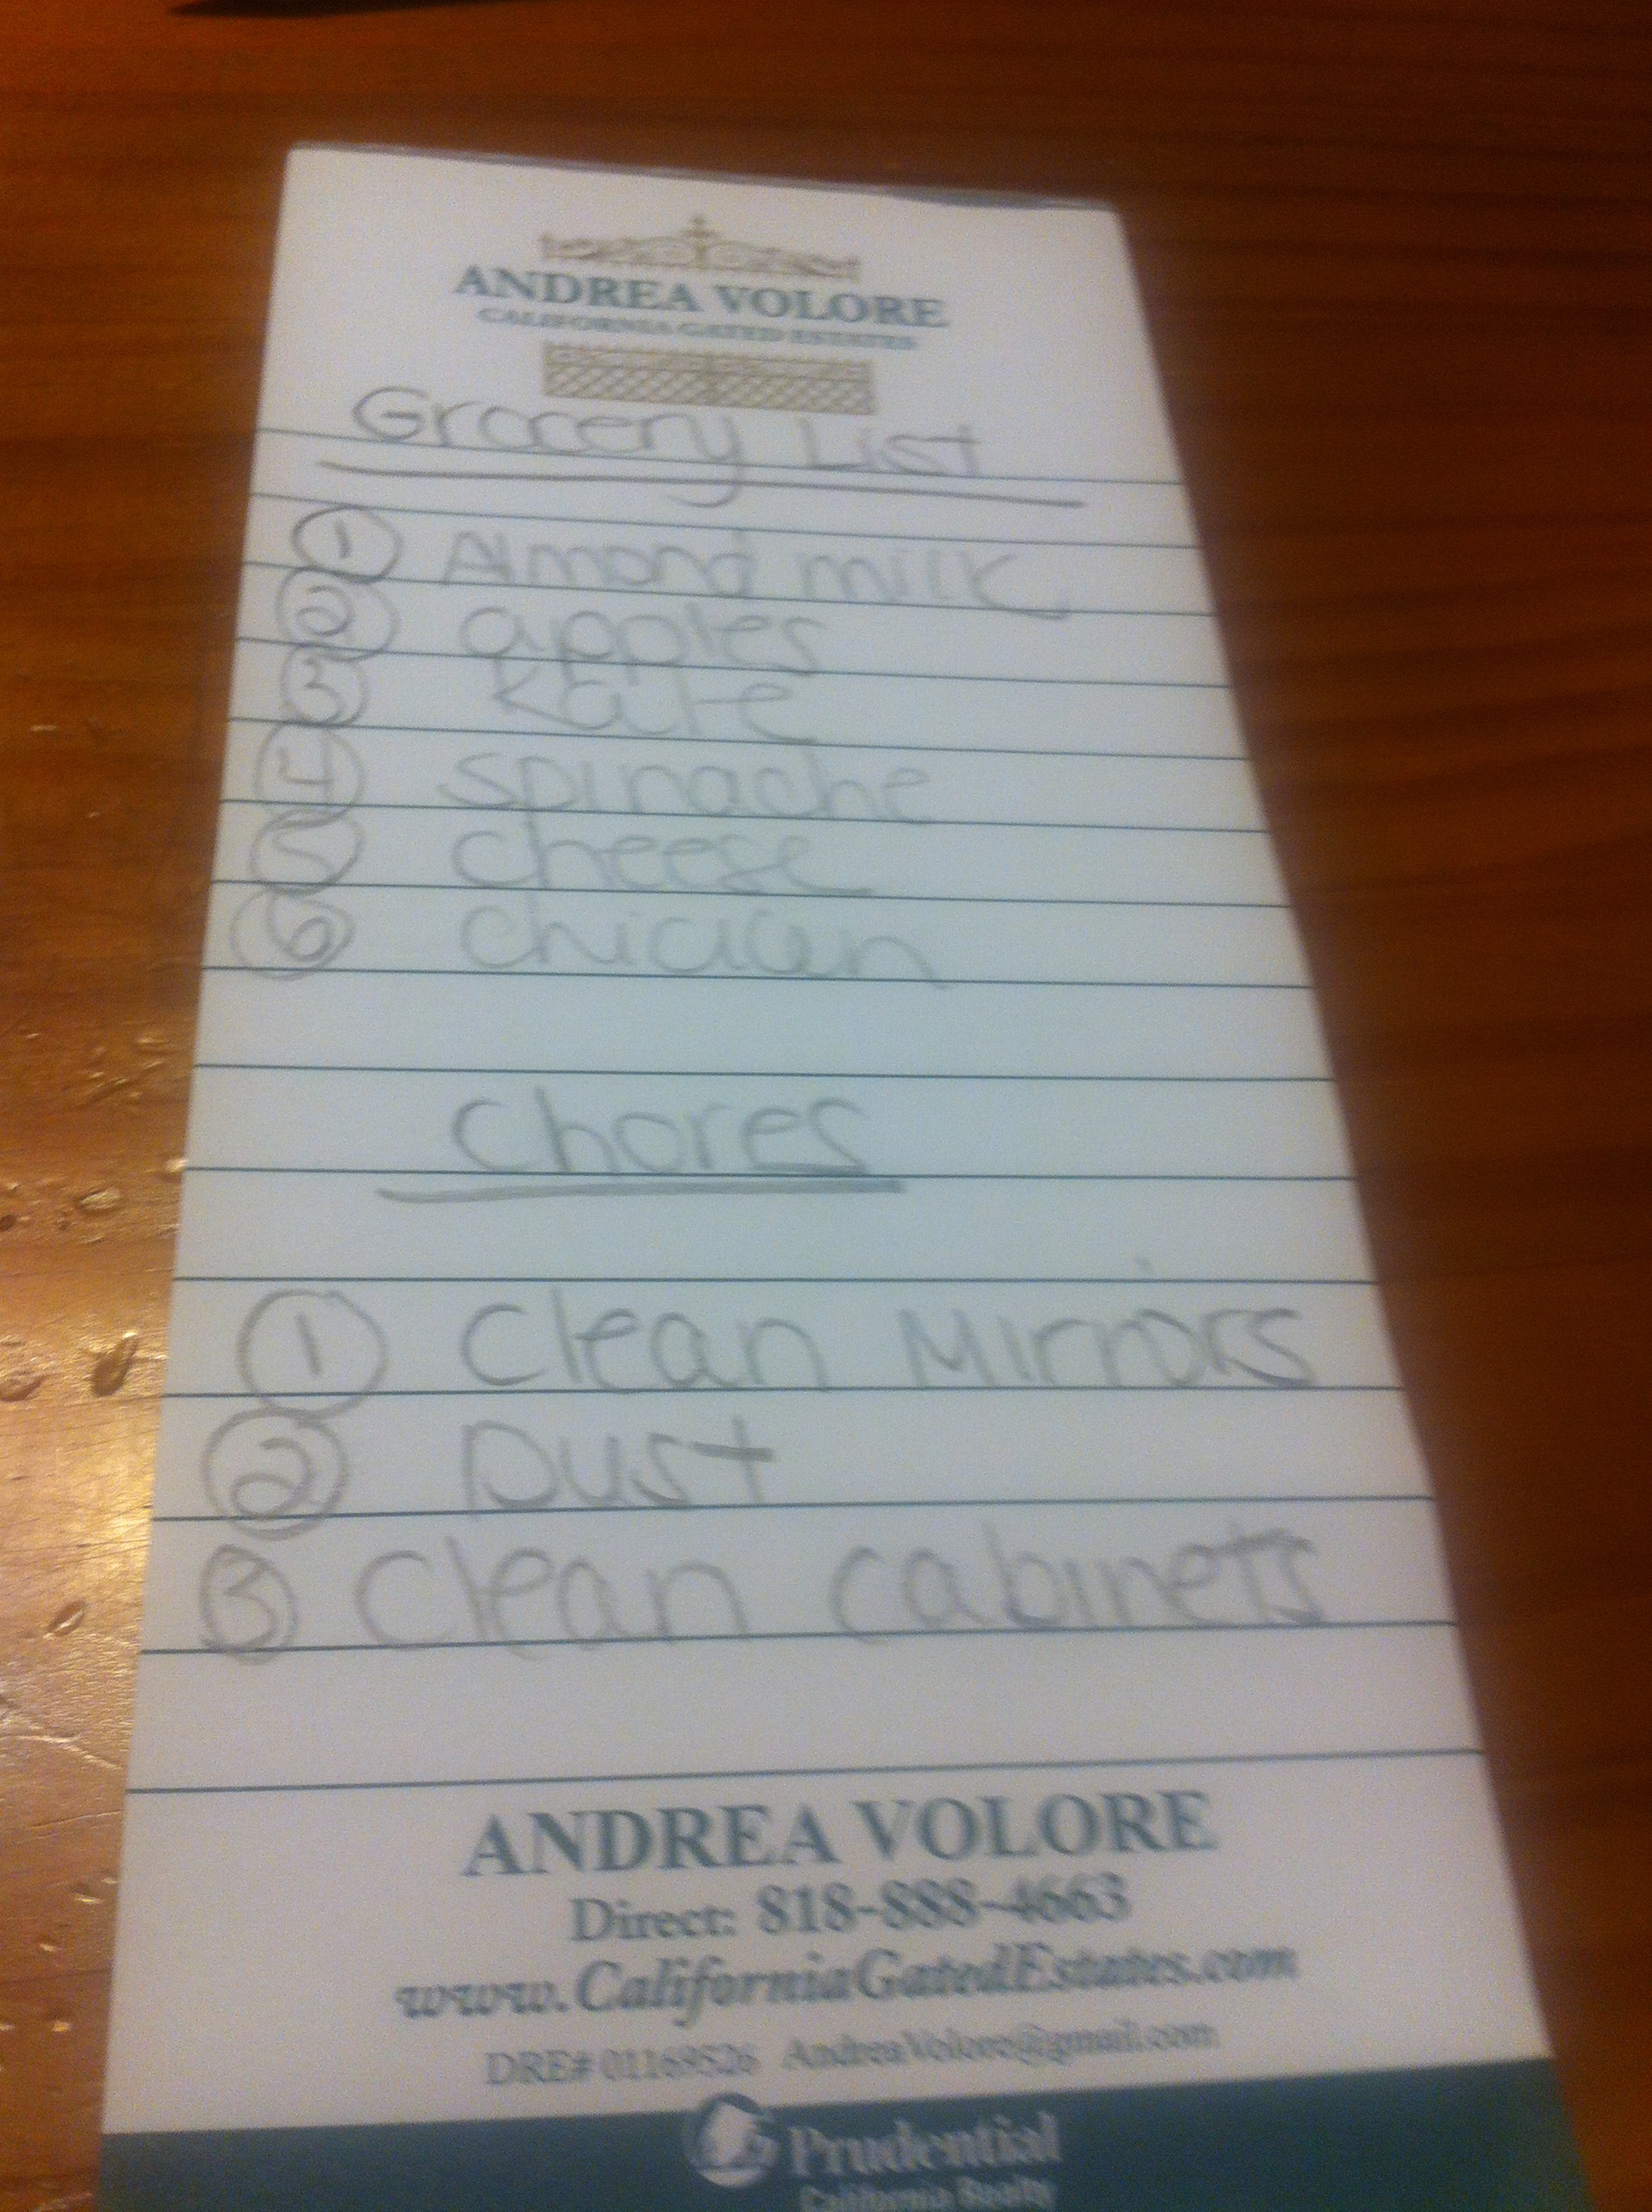 ANDREA VOLORE
CALIFORNIA GATED ESTATES
Grocery List
1 Almond milk
2 apples
3 Kale
4 spinache
5 cheese
6 chicken
Chores
1 Clean Mirrors
2 Dust
3 Clean cabinets
ANDREA VOLORE
Direct: 818-888-4663
www.CaliforniaGatedEstates.com
DRE# 01169526 AndreaVolore@gmail.com
Prudential
California Realty